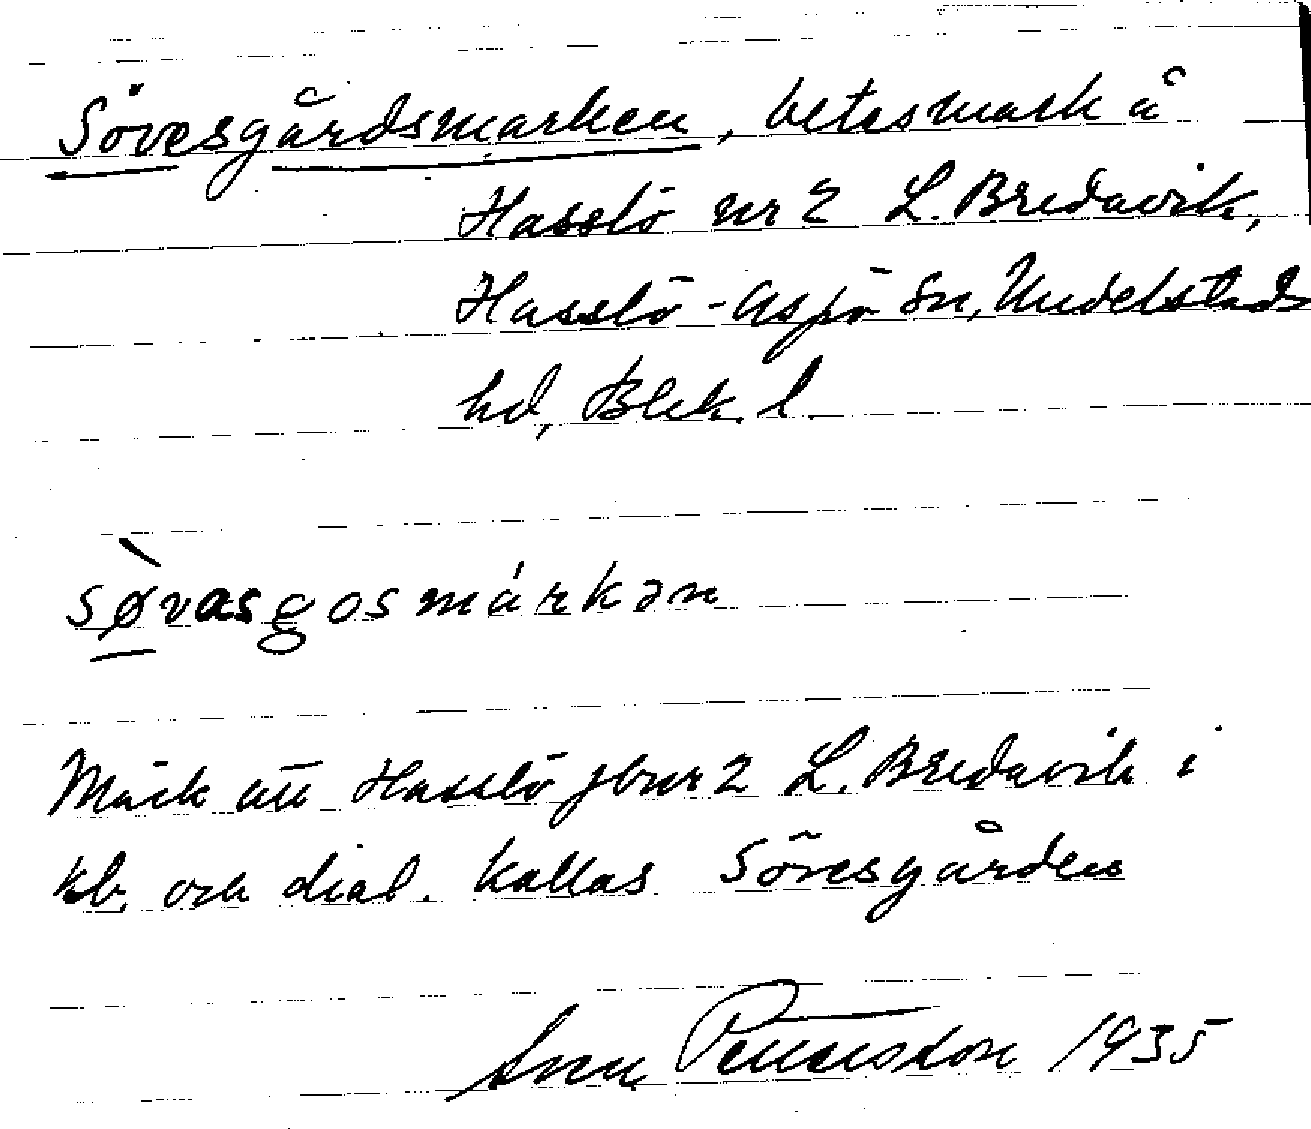 Sövesgårdsmarken, betesmark å
Hasslö nr 2 L. Bredavik,
Hasslö-Aspö sn, Medelstads
hd, Blek. l.
søvasgosmárkən
Märk att Hasslö jbnr 2 L. Bredavik i
kb. och dial. kallas Sövesgården
Pettersson 1935